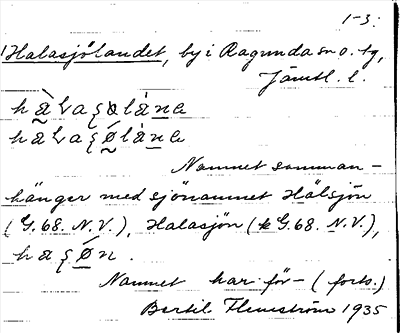 1-3:
Halasjölandet, by i Ragunda sn o. tg,
Jämtl. l.
Namnet samman-
hänger med sjönamnet Hälsjön
(G.68. N.V.), Halasjön (G.68. N.V.),
Namnet har för- (forts.)
Bertil Flemström 1935